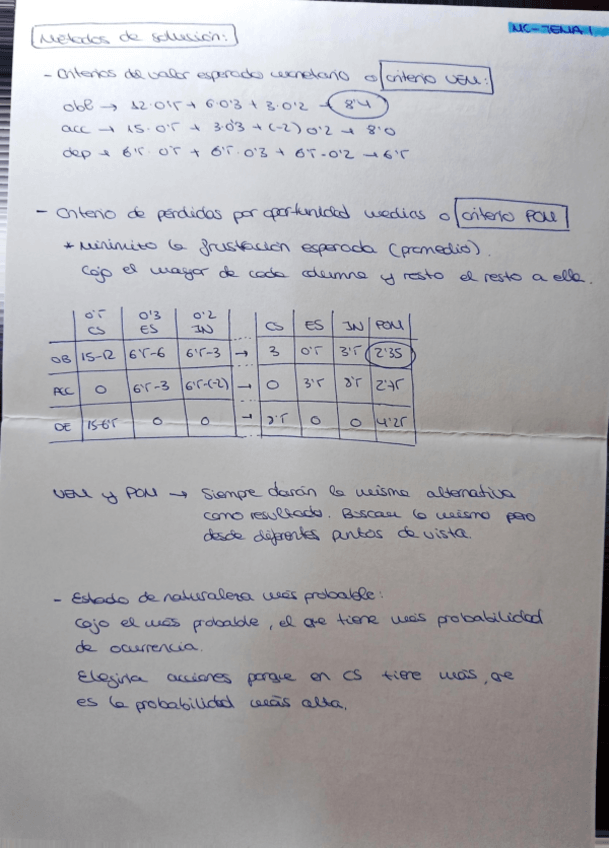 MC-TEMA 1
Métodos de solución:
- Criterios del valor esperado monetario o criterio VEM:
obl → 12·0'5 + 6·0'3 + 3·0'2 → 8'4
acc → 15·0'5 + 3·0'3 + (-2)·0'2 → 8'0
dep → 6'5·0'5 + 6'5·0'3 + 6'5·0'2 → 6'5
- Criterio de pérdidas por oportunidad medias o criterio POM
* Minimizo la frustración esperada (promedio).
Cojo el mayor de cada columna y resto el resto a ella.
0'5 0'3 0'2
CS ES IN CS ES IN POM
OB 15-12 6'5-6 6'5-3 → 3 0'5 3'5 2'35
ACC 0 6'5-3 6'5-(-2) → 0 3'5 8'5 2'75
DE 15-6'5 0 0 → 8'5 0 0 4'25
VEM y POM → Siempre darán la misma alternativa
como resultado. Buscan lo mismo pero
desde diferentes puntos de vista.
- Estado de naturaleza más probable:
Cojo el más probable, el que tiene más probabilidad
de ocurrencia.
Elegiría acciones porque en CS tiene más, que
es la probabilidad más alta.